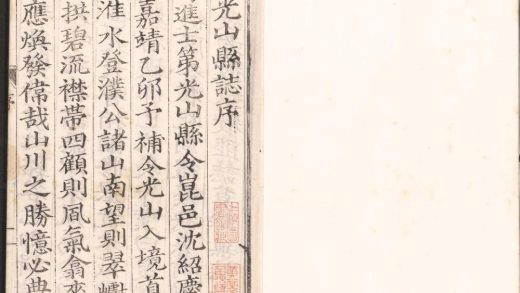 光山縣誌序
進士第光山縣令崑邑沈紹慶
嘉靖乙卯予補令光山入境首
淮水登濮公諸山南望則翠巘
拱碧流襟帶四顧則風氣翕
應煥發偉哉山川之勝憶必典
序